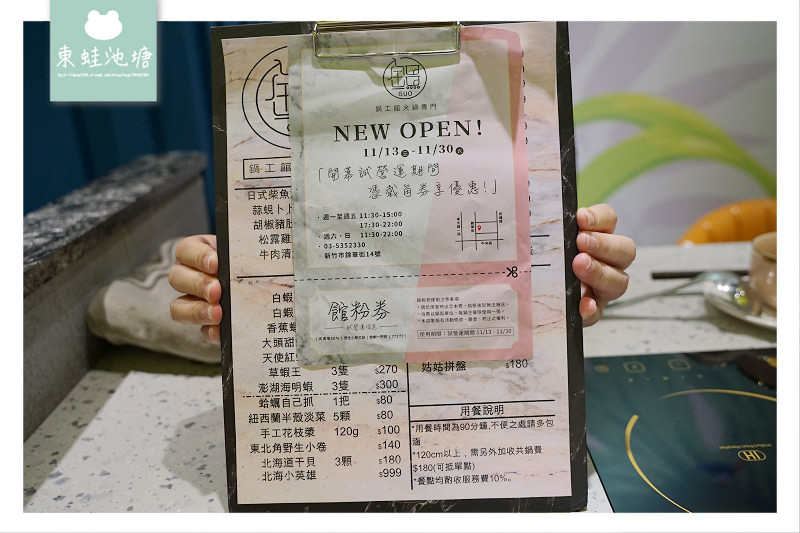 東蛙池塘
GUO
鍋工館火鍋專門
NEW OPEN!
11/13 三 - 11/30 六
「開幕試營運期間
憑截角券享優惠!」
· 週一至週五 11:30-15:00
17:30-22:00
· 週六、日 11:30-22:00
· 03-5352330
· 新竹市錦華街14號
館粉券
試營運優惠
使用期限：試營運期間 11/13 - 11/30
鍋工館
日式柴魚
蒜蜆卜
胡椒豬肚
松露雞
牛肉清
白蝦
白蝦
香蕉
大頭甜
天使紅
草蝦王 3隻 $270
澎湖海明蝦 3隻 $300
蛤蠣自己抓 1把 $80
紐西蘭半殼淡菜 5顆 $80
手工花枝漿 120g $100
東北角野生小卷 $140
北海道干貝 3顆 $180
北海小英雄 $999
姑姑拼盤 $180
用餐說明
*用餐時間為90分鐘,不便之處請多包
涵
*120cm以上，需另外加收共鍋費
$180(可抵單點)
*餐點均酌收服務費10%。
IH